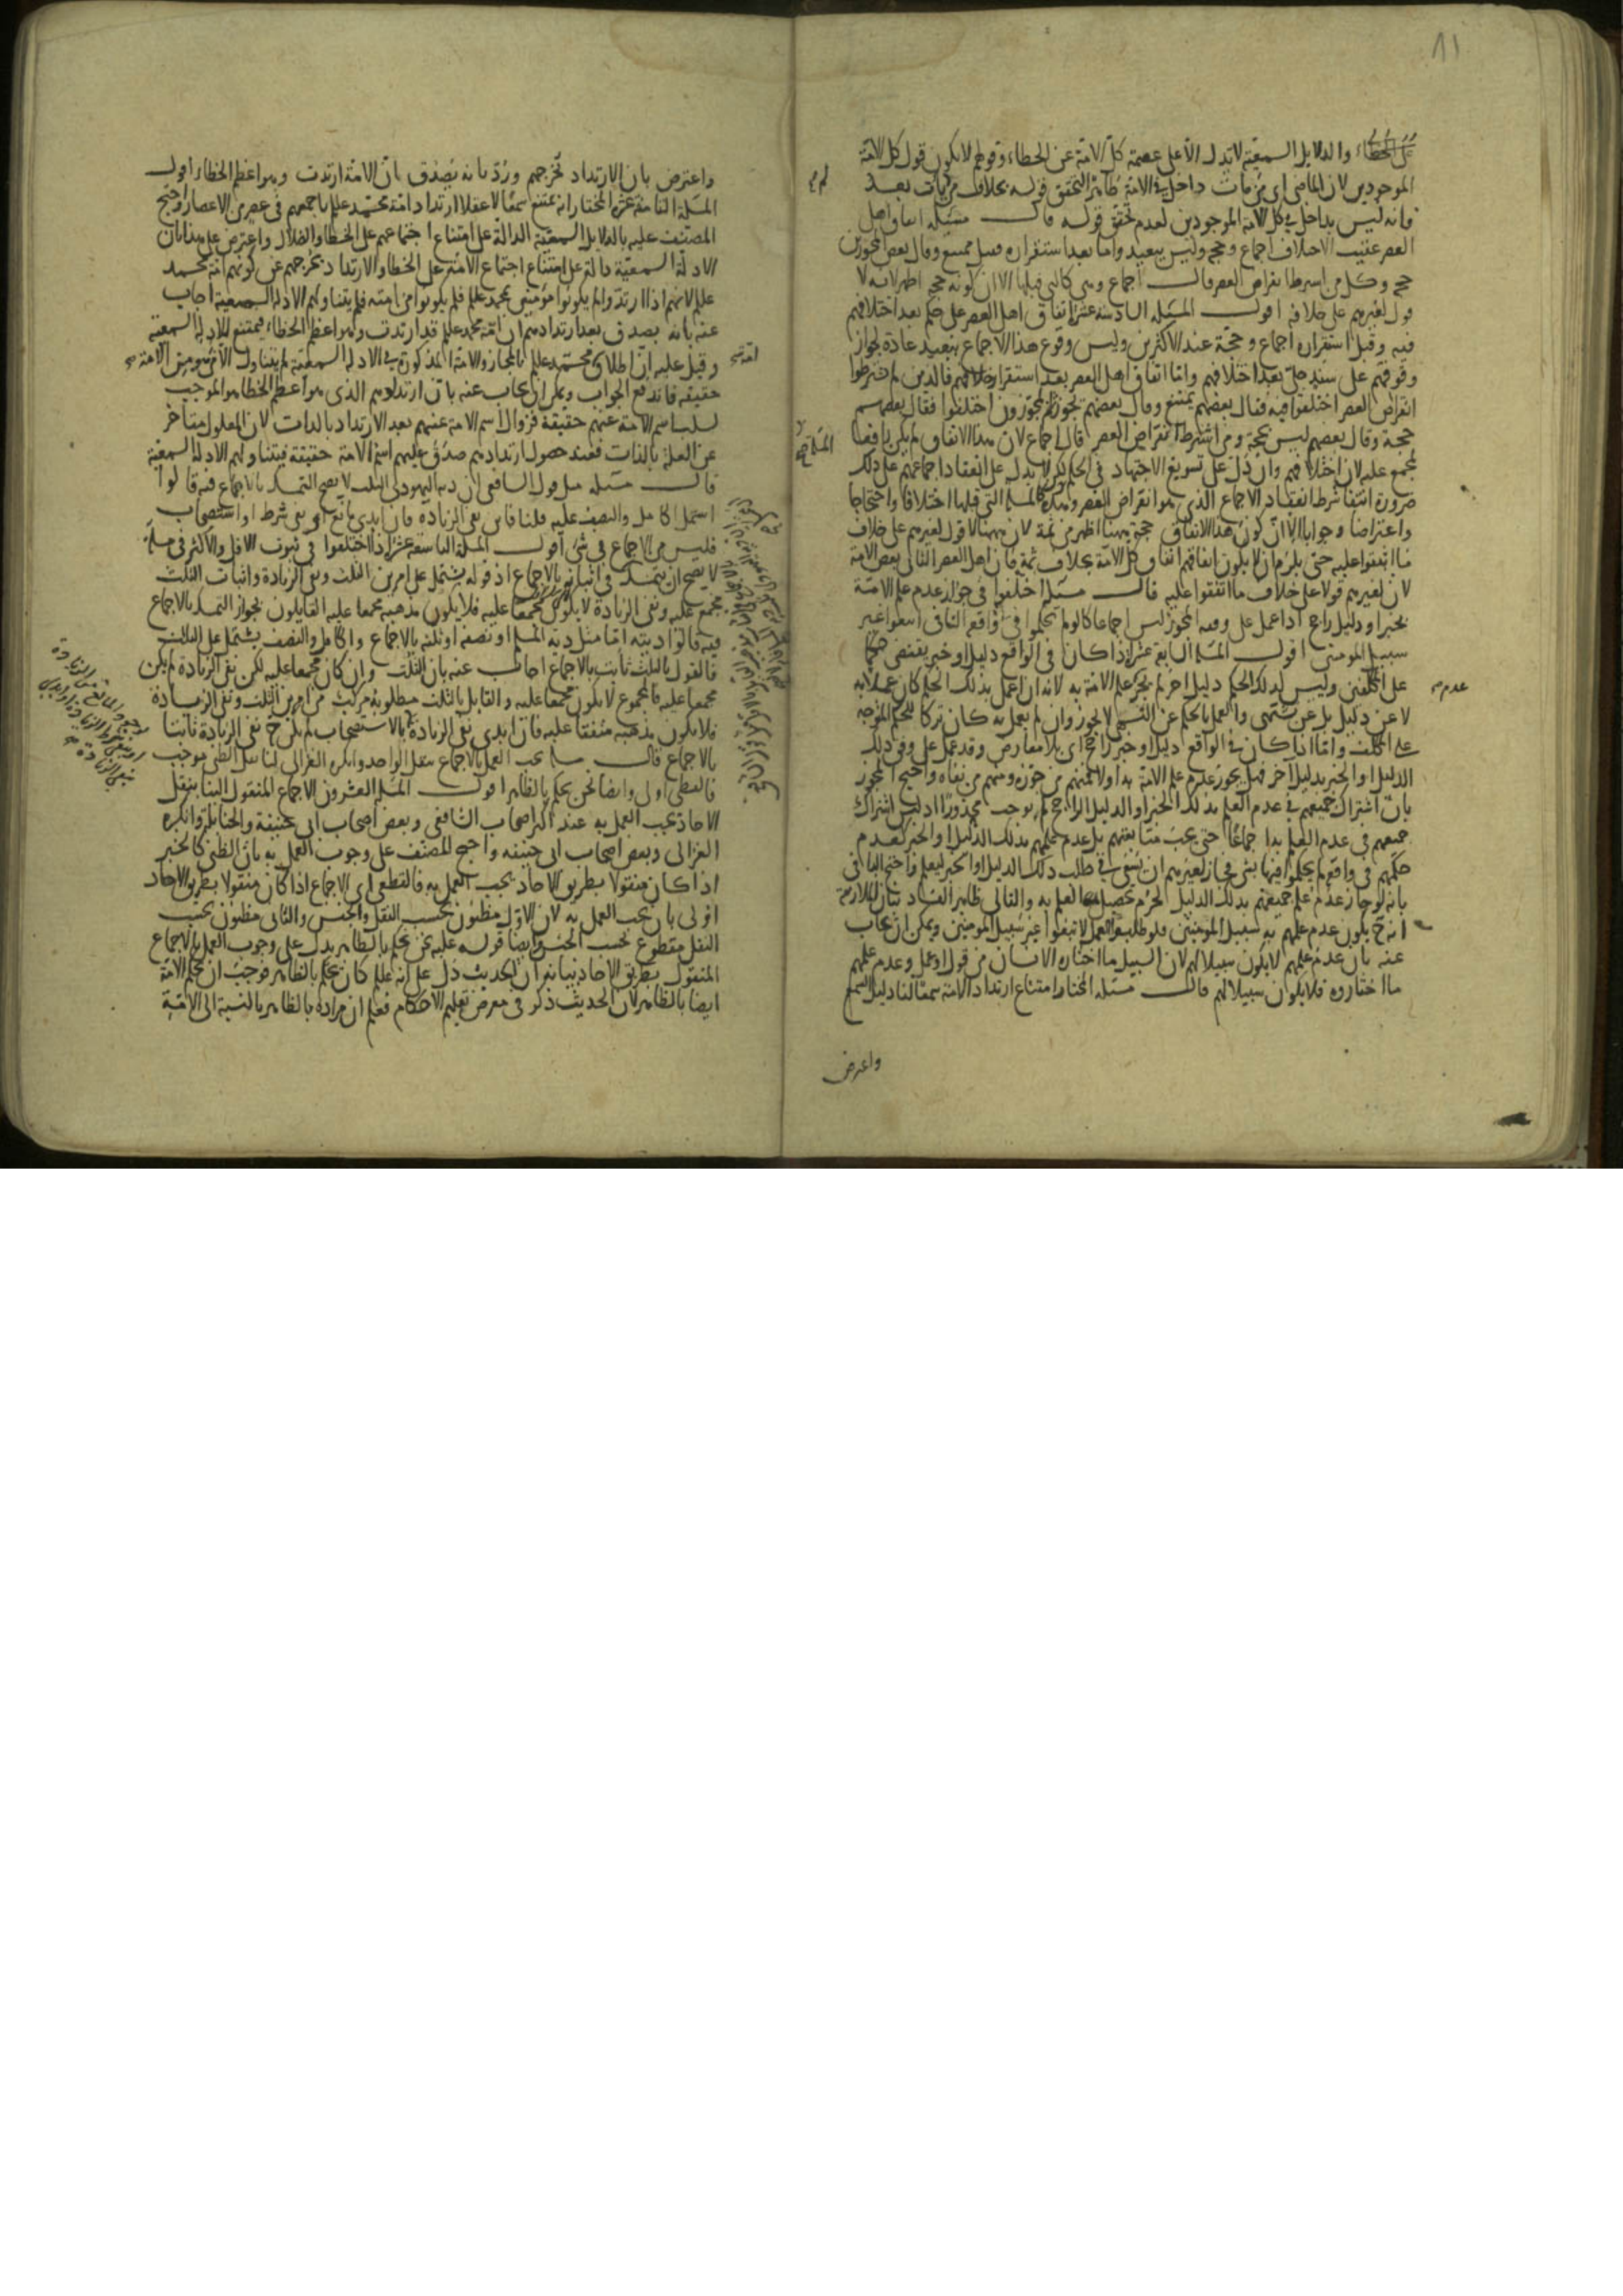 ٨١
على الخطاء والدلايل السمعية لا تدل الا على عصمة كل الامة عن الخطاء وقولهم لا يكون قول كل الامة
الموجودين لان الماضى اى من مات داخل فى الامة ظاهرا لتحقق قوله بخلاف من يات بعد
فانه ليس بداخل فى كل الامة الموجودين لعدم تحقق قوله قال مسئلة اتفاق اهل
العصر عقيب الاختلاف اجماع وحجة وليس ببعيد واما بعد استقراره فقيل ممتنع وقال بعض المجوزين
حجة وكل من اشترط انقراض العصر قال اجماع وهى كالتى قبلها الا ان كونه حجة اظهر لانه لا
قول لغيرهم على خلافه اقول المسئلة السادسة عشر اتفاق اهل العصر على حكم بعد اختلافهم
فيه وقبل استقراره اجماع وحجة عند الاكثرين وليس وقوع هذا الاجماع ببعيد عادة لجواز
وقوفهم على سند جلى بعد اختلافهم واما اتفاق اهل العصر بعد استقرار خلافهم فالذين لم يشترطوا
انقراض العصر اختلفوا فيه فقال بعضهم يمتنع وقال بعضهم يجوز والمجوزون اختلفوا فقال بعضهم
حجة وقال بعضهم ليس بحجة ومن اشترط انقراض العصر قال اجماع لان هذا الاتفاق لم يكن رافعا
لمجمع عليه لان اختلافهم وان دل على تسويغ الاجتهاد فى الحكم لكن لا يدل على انعقاد اجماعهم على ذلك
ضرورة انتفا شرط انعقاد الاجماع الذى هو انقراض العصر وهذه كالمسئلة التى قبلها اختلافا واحتجاجا
واعتراضا وجوابا الا ان كون هذا الاتفاق حجة ههنا اظهر من ثمة لان ههنا لا قول لغيرهم على خلاف
ما اتفقوا عليه حتى يلزم ان لا يكون اتفاقهم اتفاق كل الامة بخلاف ثمة فان اهل العصر الثانى بعض الامة
لان لغيرهم قولا على خلاف ما اتفقوا عليه قال مسئلة اختلفوا فى جواز عدم علم الامة
بخبر او دليل راجح اذا عمل على وفقه المجوز ليس اجماعا كما لو لم يحكموا فى واقعة النافى اتبعوا غير
سبيل المومنين اقول المسئلة السابعة عشر اذا كان فى الواقع دليل او خبر يقتضى حكما
على المكلفين وليس لذلك الحكم دليل اخر لم يجز عدم علم الامة به لانه ان عمل بذلك الحكم كان عملا به
لا عن دليل بل عن تشهى والعمل بالحكم عن التشهى لا يجوز وان لم يعمل به كان تركا للحكم المتوجه
على المكلف واما اذا كان فى الواقع دليل او خبر راجح اى بلا معارض وقد عمل على وفق ذلك
الدليل او الخبر بدليل اخر فهل يجوز عدم علم الامة به اولا فمنهم من جوزه ومنهم من نفاه واحتج المجوز
بان اشتراك جميعهم فى عدم العلم بذلك الخبر او الدليل الراجح لم يوجب محذورا اذ ليس اشتراك
جميعهم فى عدم العلم بها اجماعا حتى يجب متابعتهم بل عدم علمهم بذلك الدليل او الخبر كعدم
حكمهم فى واقعة لم يحكموا فيها بشى فجاز لغيرهم ان يسعى فى طلب ذلك الدليل او الخبر ليعلم واحتج النافى
بانه لو جاز عدم علم جميعهم بذلك الدليل لحرم تحصيل العلم به والتالى ظاهر الفساد بيان الملازمة
انه ح يكون عدم علمهم به سبيل المومنين فلو طلبوا العلم لاتبعوا غير سبيل المومنين ويمكن ان يجاب
عنه بان عدم علمهم لا يكون سبيلا لهم لان السبيل ما اختاره الانسان من قول او عمل وعدم علمهم
ما اختاروه فلا يكون سبيلا لهم قال مسئلة المختار امتناع ارتداد الامة سمعا لنا دليل السمع
واعترض
عدم صح
واعترض بان الارتداد يخرجهم ورد بانه يصدق بان الامة ارتدت وهو اعظم الخطاء اقول
المسئلة الثامنة عشر المختار انه يمتنع سمعا لا عقلا ارتداد امة محمد علم باجمعهم فى عصر من الاعصار واحتج
المصنف عليه بالدلايل السمعية الدالة على امتناع اجتماعهم على الخطا والضلال واعترض عليه بان
الادلة السمعية دالة على امتناع اجتماع الامة على الخطا والارتداد يخرجهم عن كونهم امة محمد
علم لانهم اذا ارتدوا لم يكونوا مؤمنين بمحمد علم فلم يكونوا من امته فلم يتناولهم الادلة السمعية اجاب
عنه بانه يصدق بعد ارتدادهم ان امة محمد علم قد ارتدت وهو اعظم الخطاء فيمتنع للادلة السمعية
وقيل عليه ان اطلاق محمد علم بالمجاز والامة المذكورة فى الادلة السمعية لم يتناول الا من هو من الامة
حقيقة فاندفع الجواب ويمكن ان يجاب عنه بان ارتدادهم الذى هو اعظم الخطا هو الموجب
لسلب اسم الامة عنهم حقيقة فزوال اسم الامة عنهم بعد الارتداد بالذات لان المعلول متاخر
عن العلة بالذات فعند حصول ارتدادهم صدق عليهم اسم الامة حقيقة فيتناولهم الادلة السمعية
قال مسئلة مثل قول الشافعى ان دية اليهودى الثلث لا يصح التمسك بالاجماع فيه قالوا
اشتمل الكامل والنصف عليه قلنا فاين نفى الزيادة فان ابدى مانع او نفى شرط او استصحاب
فليس من الاجماع فى شى اقول المسئلة التاسعة عشر اذا اختلفوا فى ثبوت الاقل والاكثر فى مسئلة
لا يصح ان يتمسك فى اثباته بالاجماع اذ قوله يشتمل على امرين الثلث ونفى الزيادة واثبات الثلث
مجمع عليه ونفى الزيادة لا يكون مجمعا عليه فلا يكون مذهبه مجمعا عليه القايلون بجواز التمسك بالاجماع
فيه قالوا ديته اما مثل دية المسلم او نصفه او ثلثه بالاجماع والكامل والنصف يشتمل على الثلث
فالقول بالثلث ثابت بالاجماع اجاب عنه بان الثلث وان كان مجمعا عليه لكن نفى الزيادة لم يكن
مجمعا عليه فالمجموع لا يكون مجمعا عليه والقايل بالثلث مطلوبه مركب من امرين الثلث ونفى الزيادة
فلا يكون مذهبه متفقا عليه فان ابدى نفى الزيادة بالاستصحاب لم يكن ح نفى الزيادة ثابتا
بالاجماع قال مسئلة يجب العمل بالاجماع بنقل الواحد وانكره الغزالى لنا نقل الظنى موجب
فالقطعى اولى وايضا نحن نحكم بالظاهر اقول المسئلة العشرون الاجماع المنقول الينا بنقل
الاحاد يجب العمل به عند اكثر اصحاب الشافعى وبعض اصحاب ابى حنيفة والحنابلة وانكره
الغزالى وبعض اصحاب ابى حنيفة واحتج المصنف على وجوب العمل به بان الظنى كالخبر
اذا كان منقولا بطريق الاحاد يجب العمل به فالقطعى اى الاجماع اذا كان منقولا بطريق الاحاد
اولى بان يجب العمل به لان الاول مظنون بحسب النقل والجنس والثانى مظنون بحسب
النقل مقطوع بحسب الجنس وايضا قوله عليه نحن نحكم بالظاهر يدل على وجوب العمل بالاجماع
المنقول بطريق الاحاد بيانه ان الحديث دل على انه علم كان يحكم بالظاهر فوجب ان يحكم الامة
ايضا بالظاهر لان الحديث ذكر فى معرض تعليم الاحكام فعلم ان مراده بالظاهر بالنسبة الى الامة